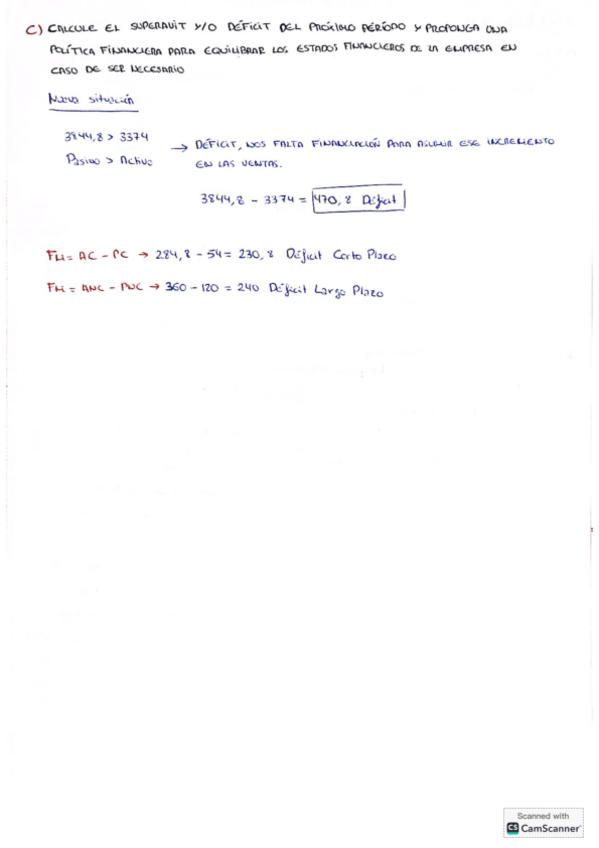 C) CALCULE EL SUPERAVIT Y/O DÉFICIT DEL PRÓXIMO PERÍODO Y PROPONGA UNA
POLÍTICA FINANCIERA PARA EQUILIBRAR LOS ESTADOS FINANCIEROS DE LA EMPRESA EN
CASO DE SER NECESARIO
Nueva situación
3844,8 > 3374
Pasivo > Activo
→ DÉFICIT, NOS FALTA FINANCIACIÓN PARA ASUMIR ESE INCREMENTO
EN LAS VENTAS.
3844,8 - 3374 = 470,8 Déficit
FM = AC - PC → 284,8 - 54 = 230,8 Déficit Corto Plazo
FM = ANC - PNC → 360 - 120 = 240 Déficit Largo Plazo
Scanned with
CS CamScanner